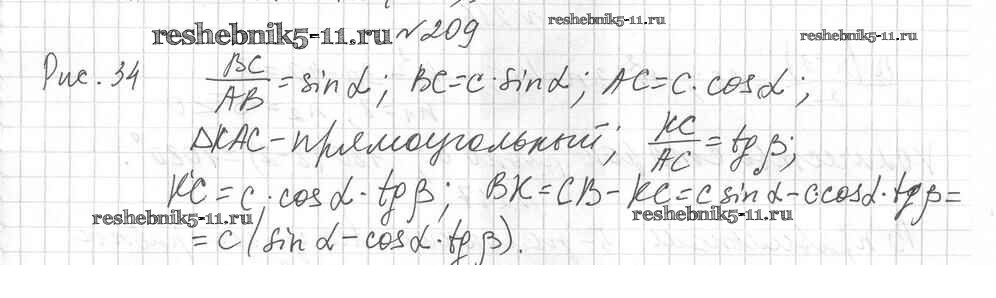 reshebnik5-11.ru
reshebnik5-11.ru №209 reshebnik5-11.ru
Рис. 34 BC/AB = sin α; BC = c · sin α; AC = c · cos α;
ΔKAC – прямоугольный; KC/AC = tg β;
KC = c · cos α · tg β; BK = CB – KC = c sin α – c·cos α · tg β =
reshebnik5-11.ru reshebnik5-11.ru
= c (sin α – cos α · tg β).